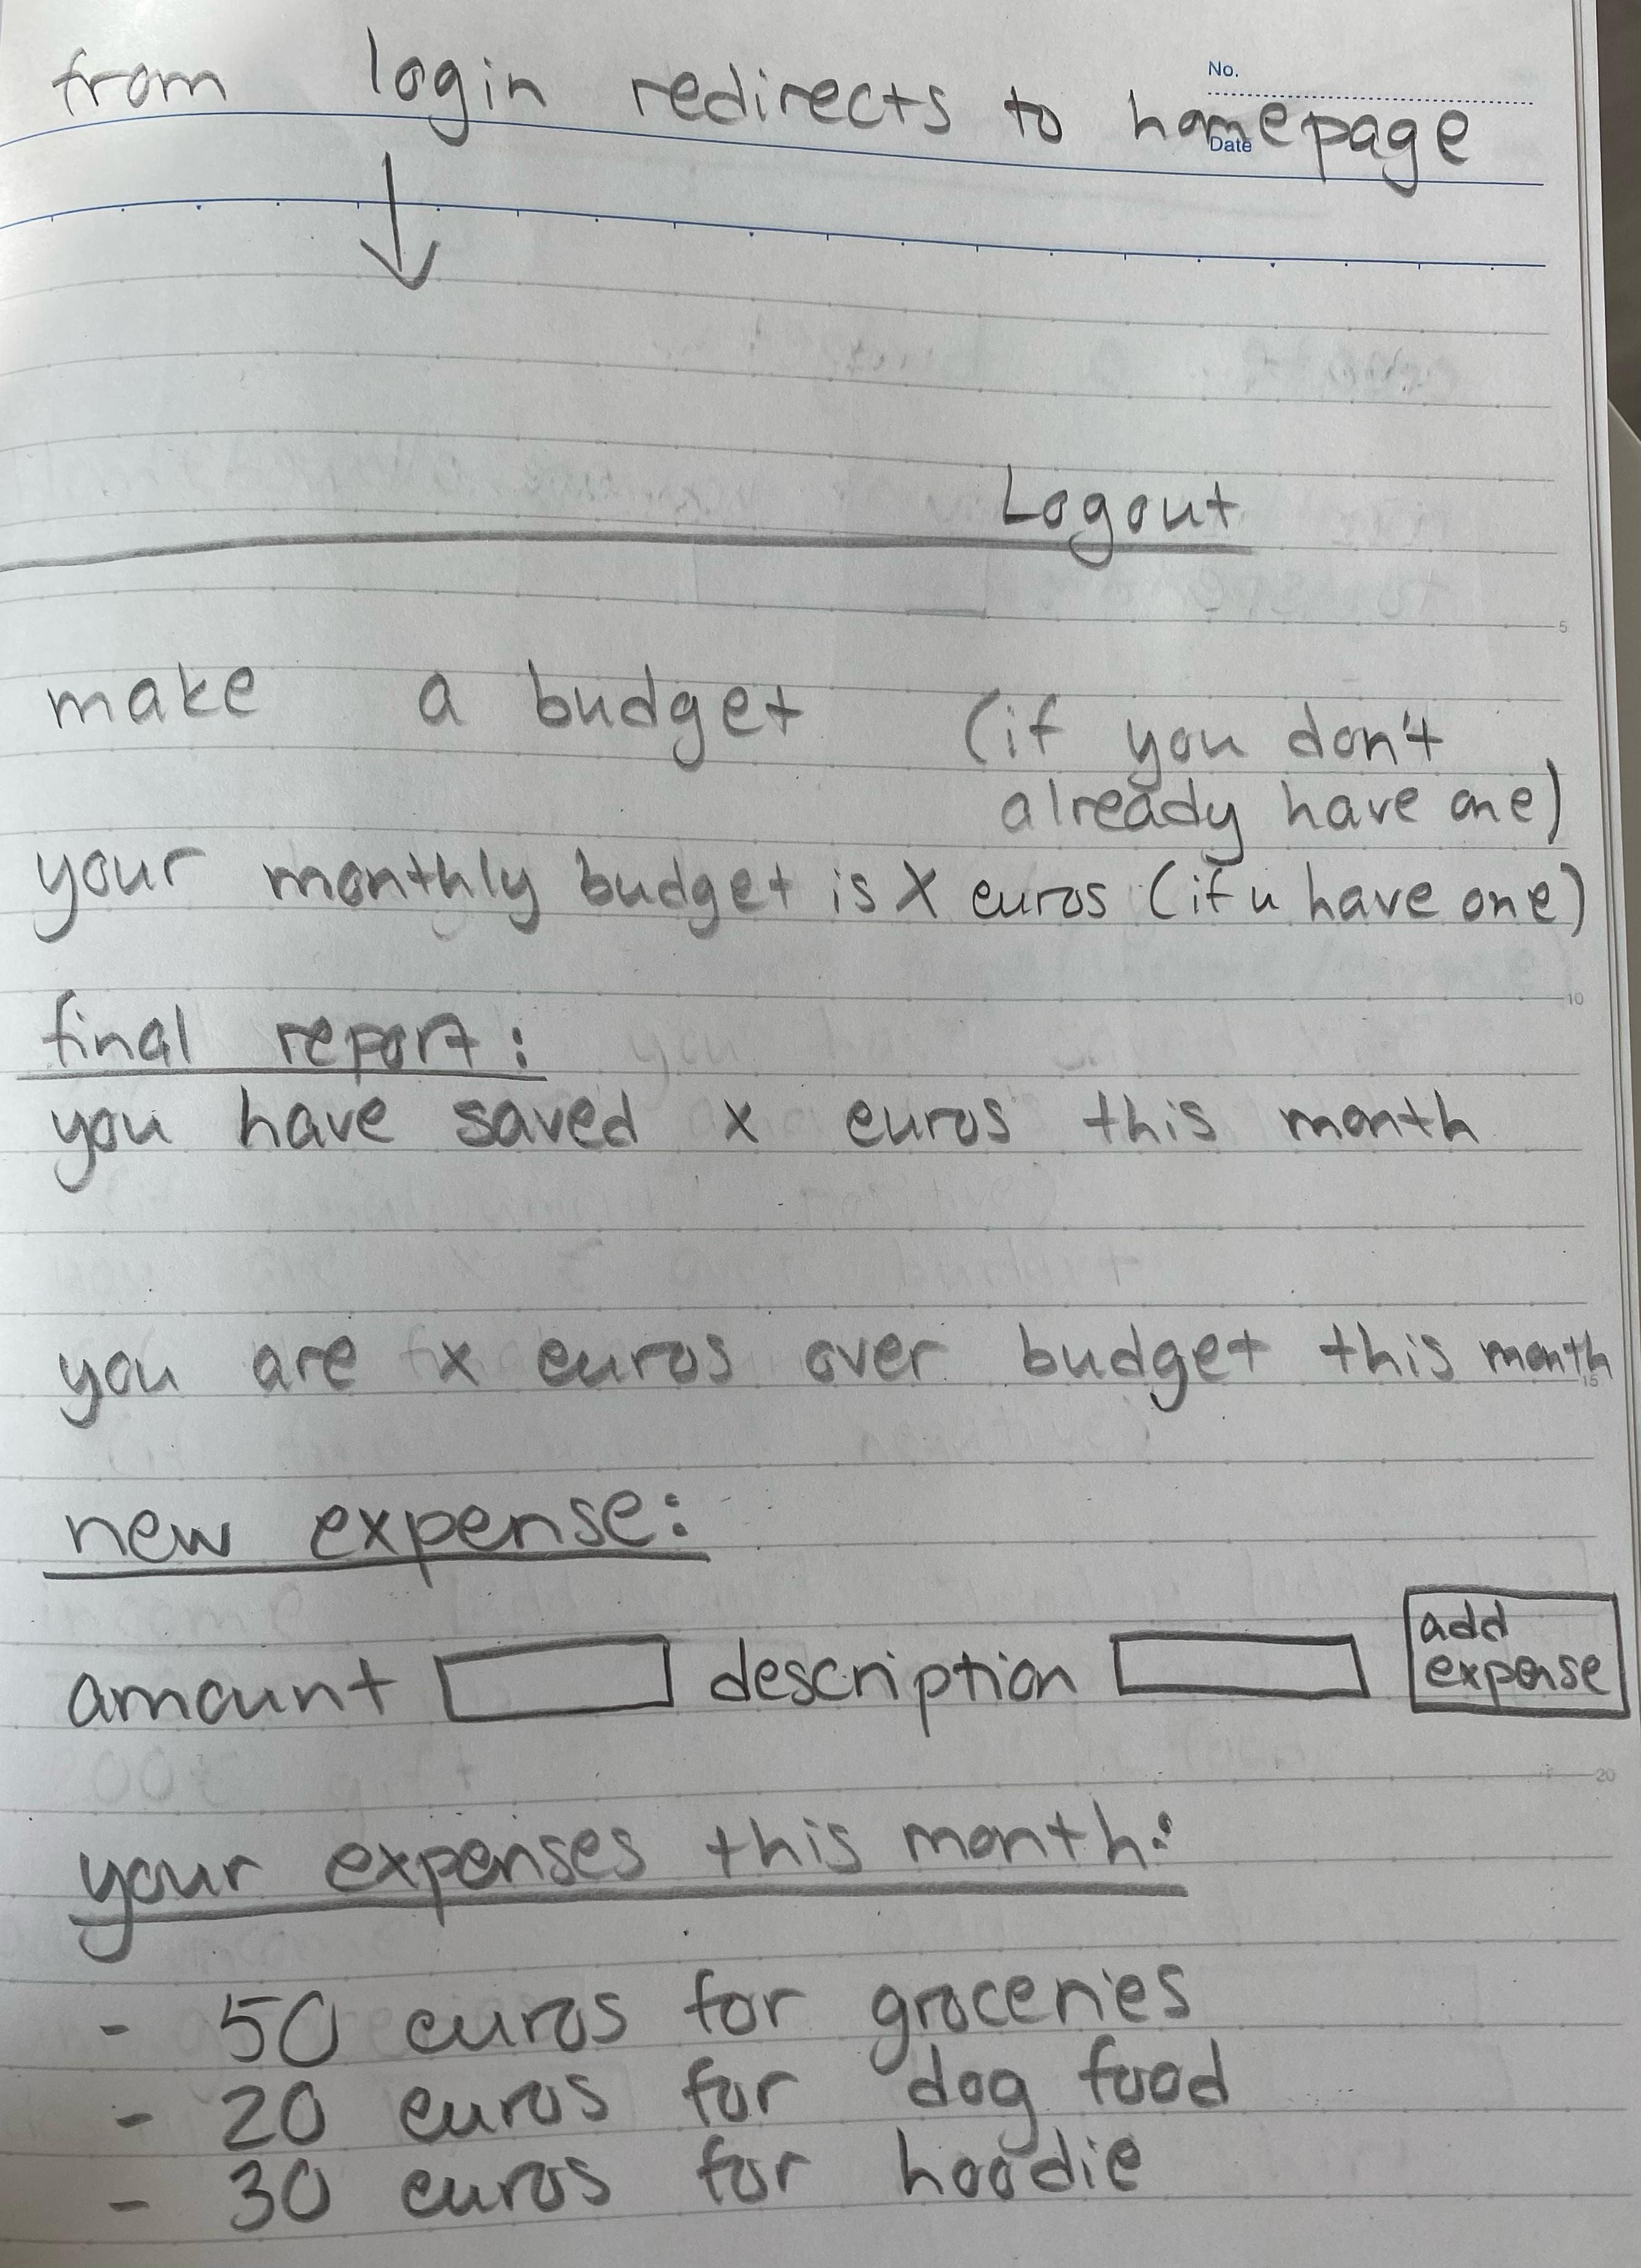 No.
from login redirects to homepage
Date
Logout
5
make a budget (if you don't
already have one)
your monthly budget is X euros (if u have one)
10
final report:
you have saved x euros this month
you are x euros over budget this month
15
new expense:
amount description add
expense
20
your expenses this month:
- 50 euros for groceries
- 20 euros for dog food
- 30 euros for hoodie